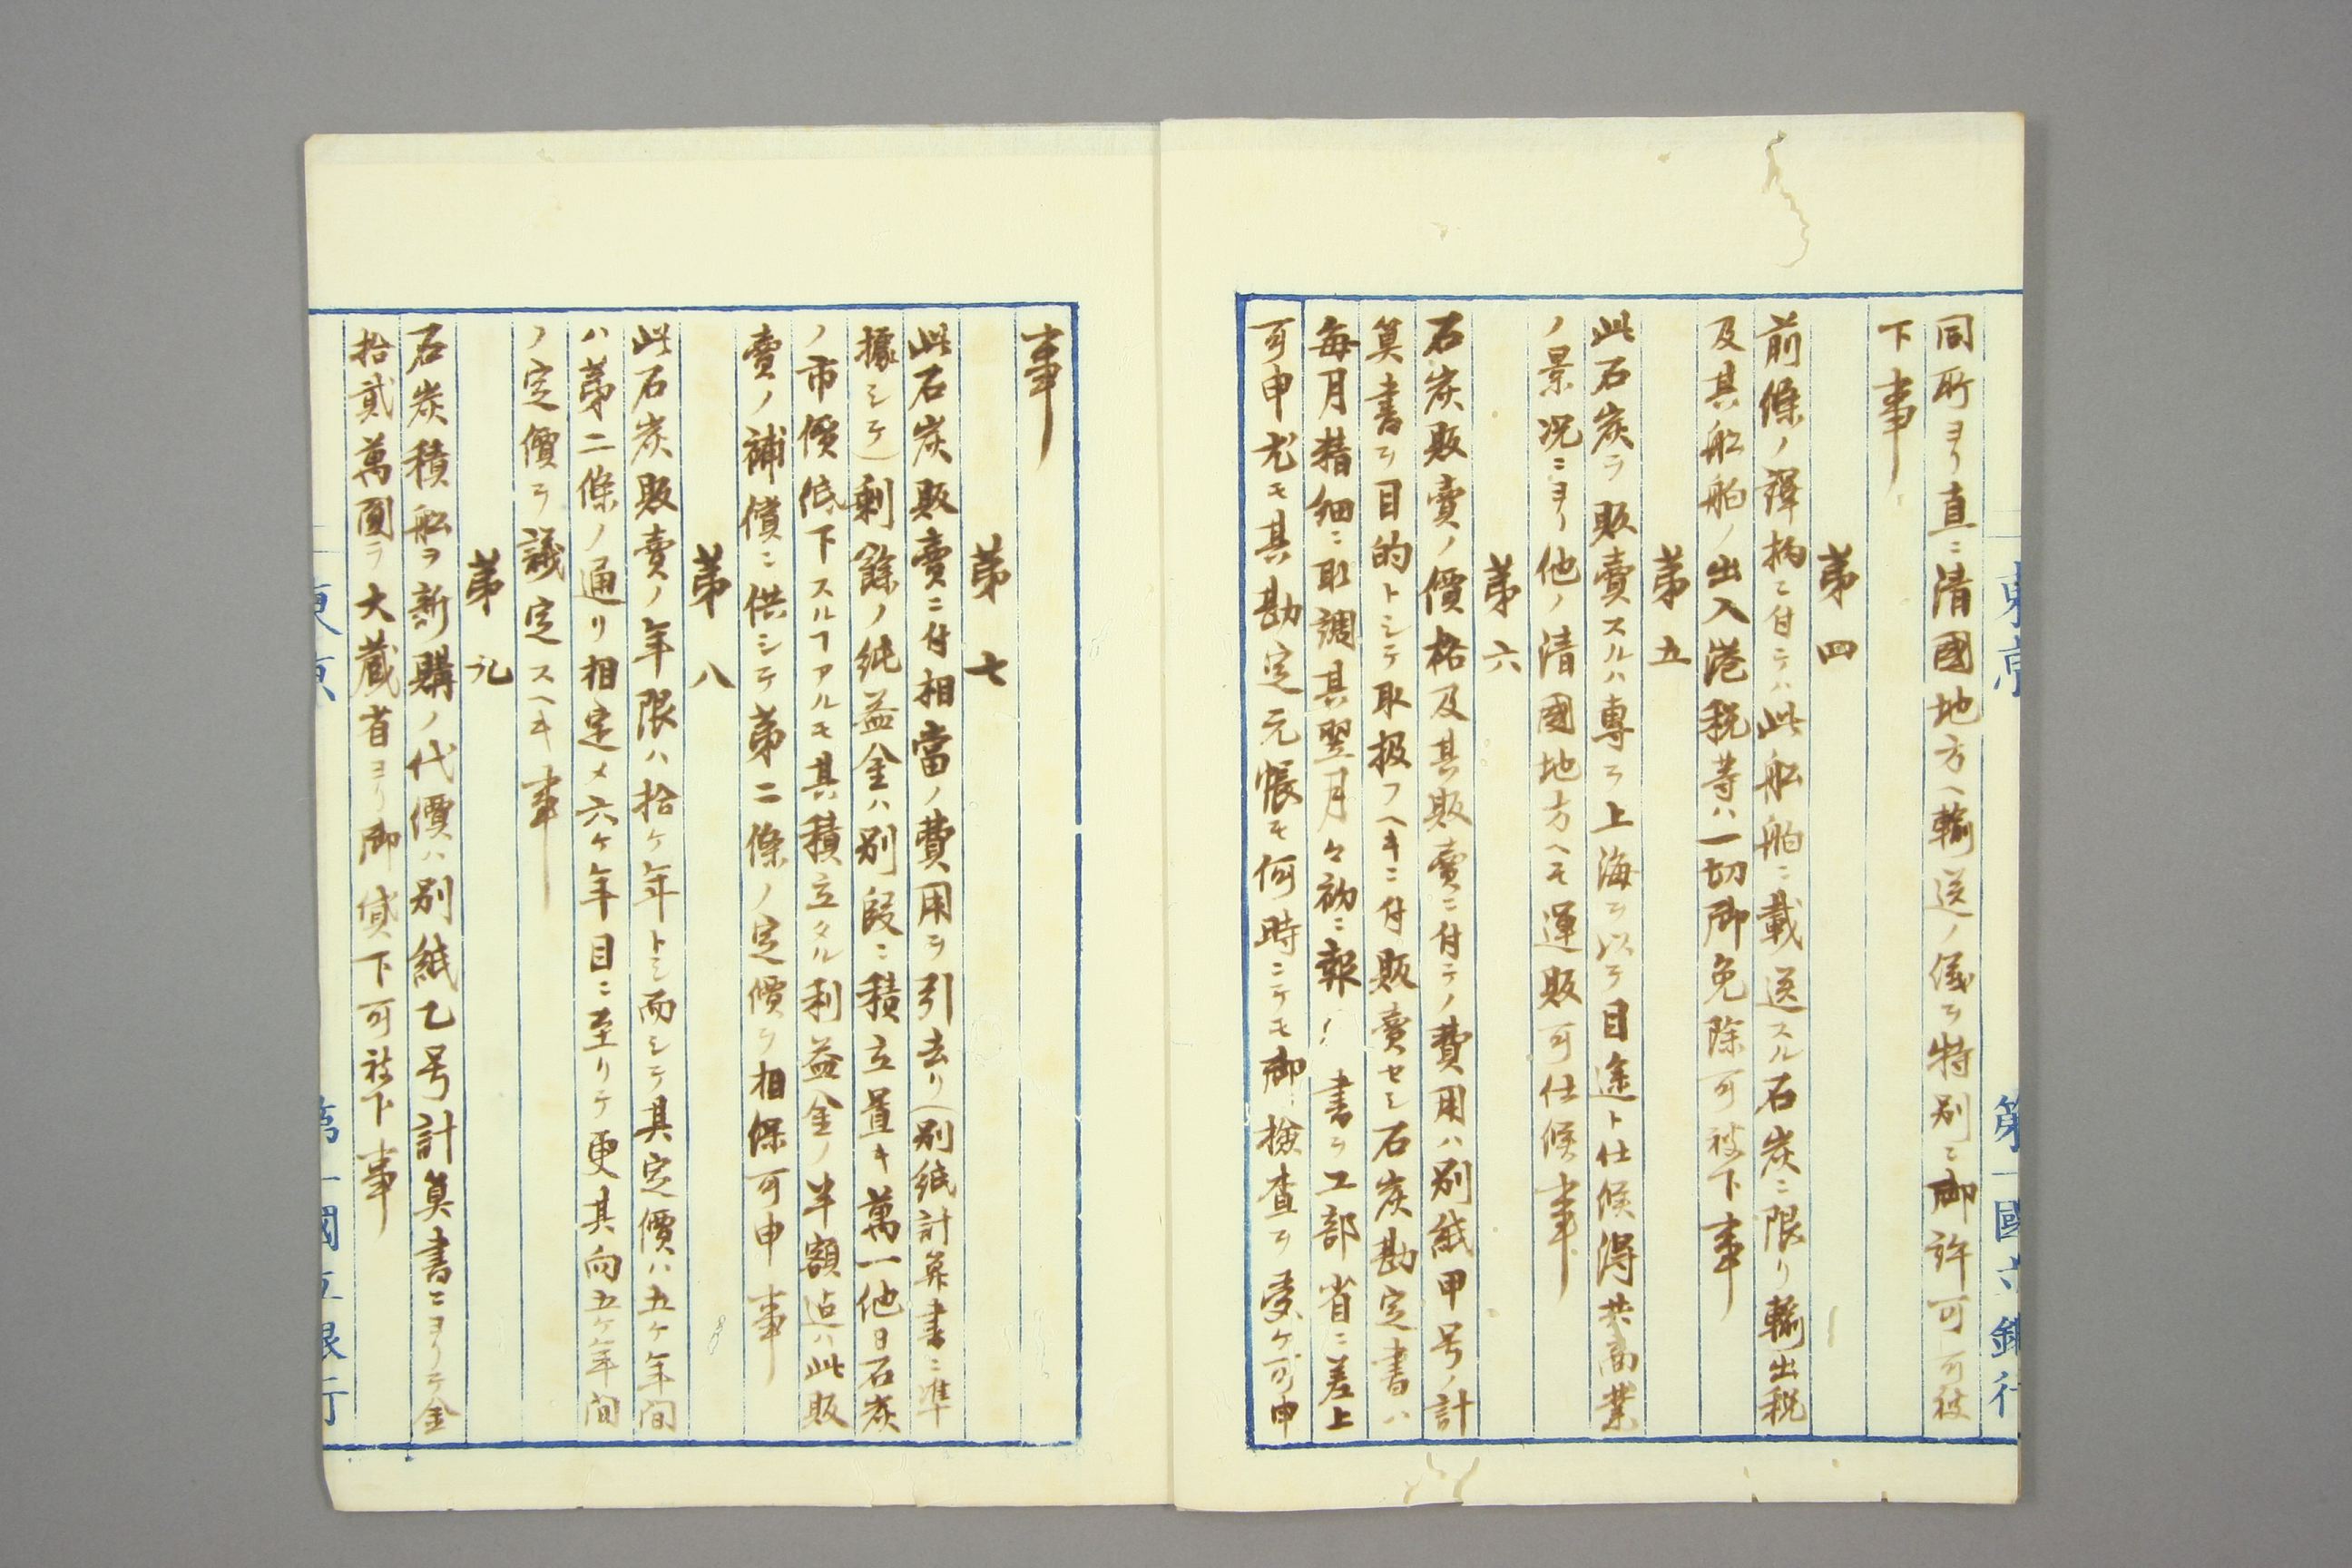 同所ヨリ直ニ清國地方ヘ輸送ノ儀ヲ特別ニ御許可可被
下事
第四
前條ノ譯柄ニ付テハ此舩舶ニ載送スル石炭ニ限リ輸出税
及其舩舶ノ出入港税等ハ一切御免除可被下事
第五
此石炭ヲ販賣スルハ專ラ上海ヲ以テ目途ト仕候得共商業
ノ景况ニヨリ他ノ清國地方ヘモ運販可仕候事
第六
石炭販賣ノ價格及其販賣ニ付テノ費用ハ別紙甲号ノ計
算書ヲ目的トシテ取扱フヘキニ付販賣セシ石炭勘定書ハ
毎月精細ニ取調其翌月々初ニ報 書ヲ工部省ニ差上
可申尤モ其勘定元帳モ何時ニテモ御検査ヲ受ケ可申
事
第七
此石炭販賣ニ付相當ノ費用ヲ引去リ(別紙計算書ニ準
據シテ)剰餘ノ純益金ハ別段ニ積立置キ萬一他日石炭
ノ市價低下スルヿアルモ其積立タル利益金ノ半額迠ハ此販
賣ノ補償ニ供シテ第二條ノ定價ヲ相保可申事
第八
此石炭販賣ノ年限ハ拾ケ年トシ而シテ其定價ハ五ケ年間
ハ第二條ノ通リ相定メ六ケ年目ニ至リテ更其向五ケ年間
ノ定價ヲ議定スヘキ事
第九
石炭積舩ヲ新購ノ代價ハ別紙乙号計算書ニヨリテ金
拾貳萬圓ヲ大蔵省ヨリ御貸下可被下事
東京 第一國立銀行